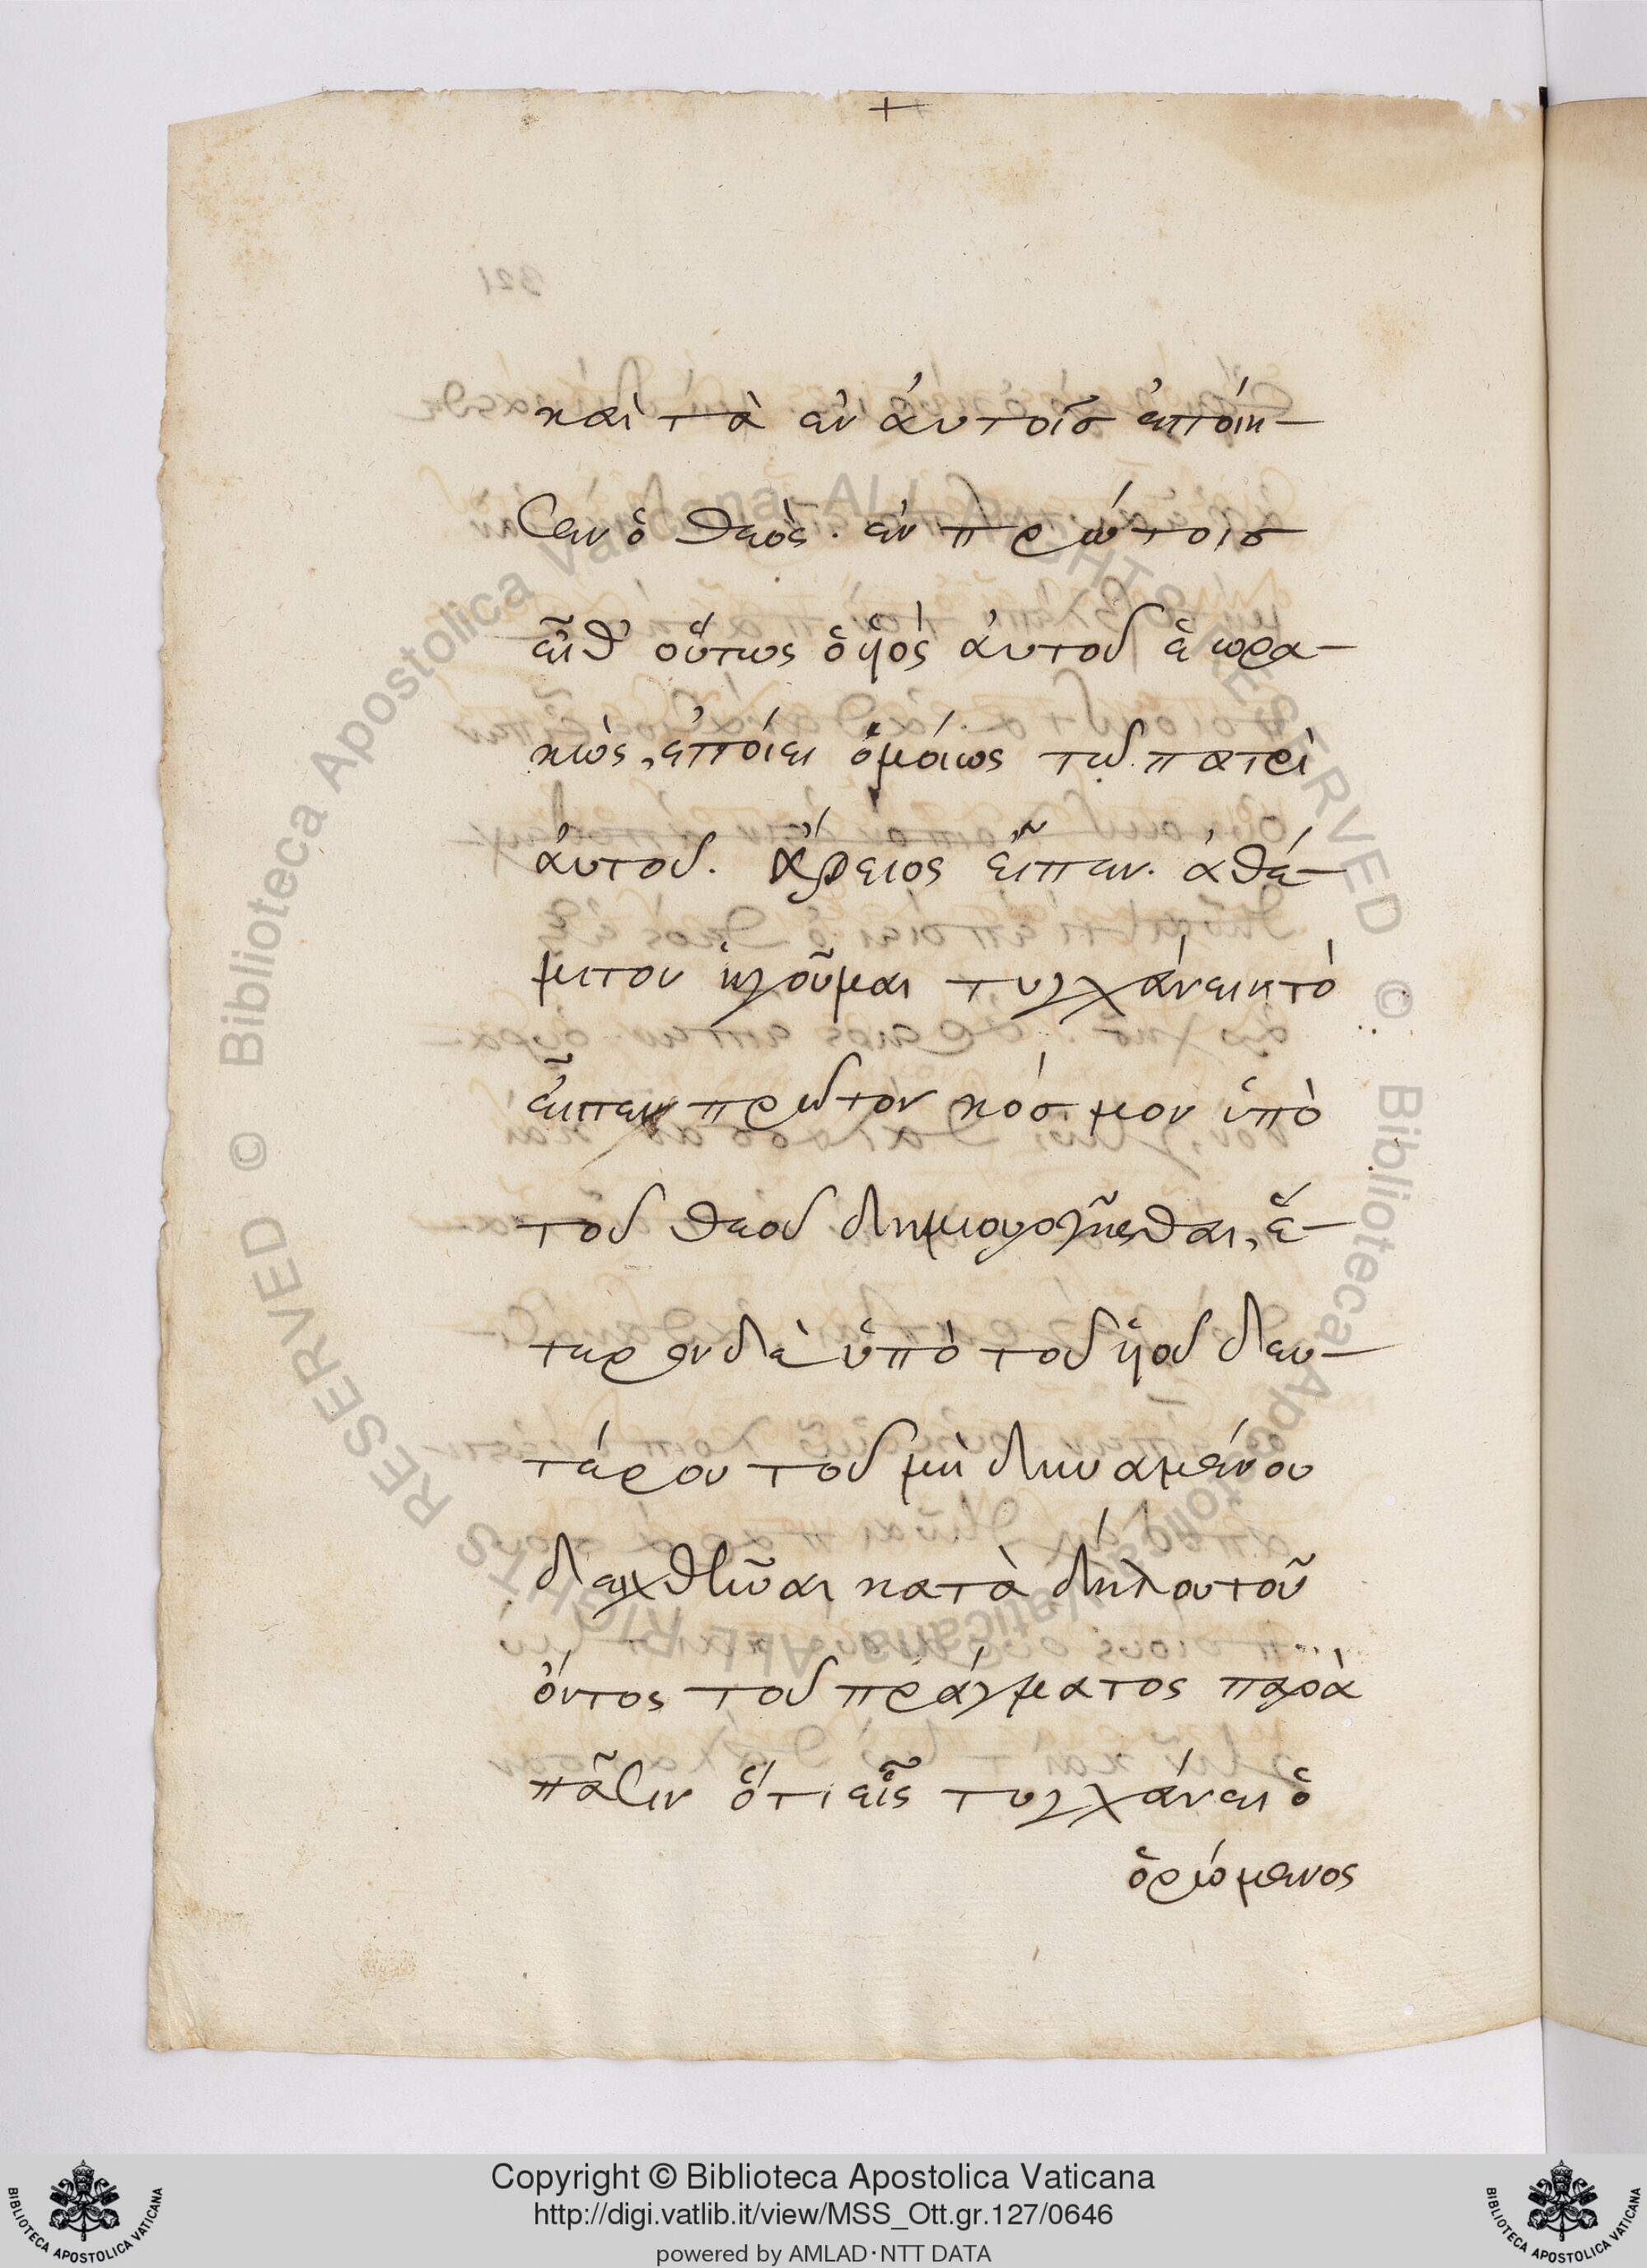 +
καὶ τὰ ἐν ἀυτοῖσ ἐποίη-
σεν ὁ θεὸς. ἐν πρώτοισ
εἶθ' οὕτως ὁ ὑϊὸς ἀυτοῦ ἑωρα-
κὼς, ἐποίει ὁμοίως τῶ πατρὶ
ἀυτοῦ. Ἄρειος εἶπεν. ἀθέ-
μιτον ἡγοῦμαι τυγχάνειν τὸ
εἶπειν πρῶτον κόσμον ὑπὸ
τοῦ θεοῦ δημιουργῆσθαι, ἕ-
τερον δὲ ὑπὸ τοῦ ὑϊοῦ δευ-
τέρου τοῦ μὴ δυναμένου
δειχθῆναι κατὰ δήλου τοῦ
ὄντος τοῦ πράγματος παρὰ
πᾶσιν ὅτι εἷς τυγχάνει ὁ
ὁρώμενος
321
BIBLIOTECA APOSTOLICA VATICANA
Copyright © Biblioteca Apostolica Vaticana
http://digi.vatlib.it/view/MSS_Ott.gr.127/0646
powered by AMLAD·NTT DATA
BIBLIOTECA APOSTOLICA VATICANA
© Biblioteca Apostolica Vaticana ALL RIGHTS RESERVED © Biblioteca Apostolica Vaticana ALL RIGHTS RESERVED